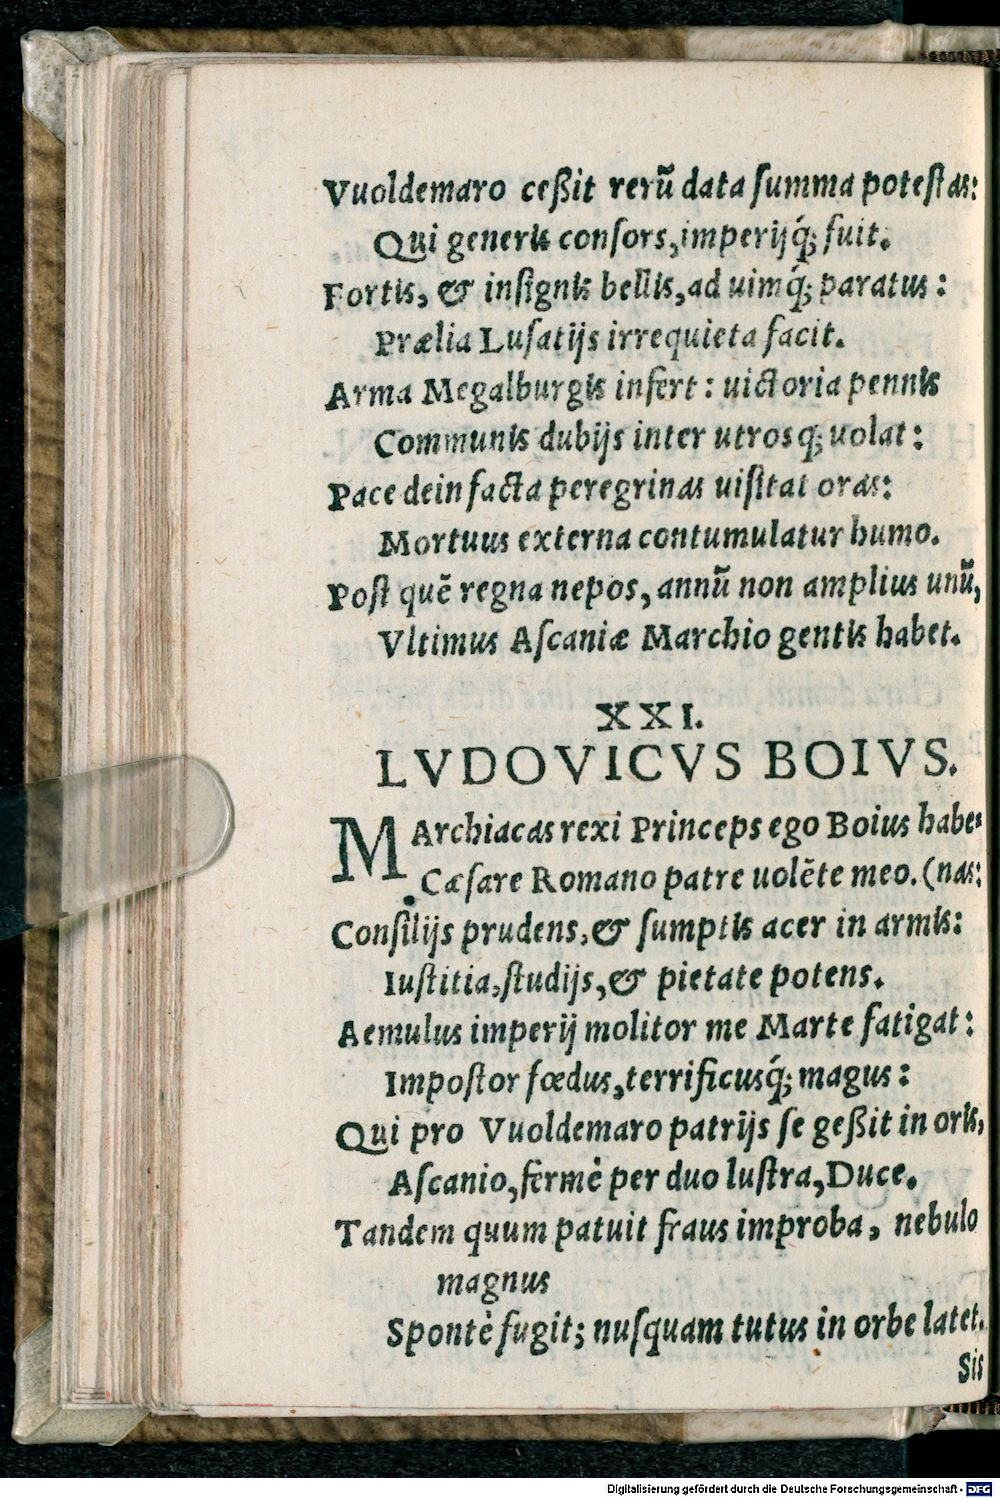 Vuoldemaro ceßit rerũ data ſumma poteſtas:
Qui generis conſors, imperijq́; fuit.
Fortis, & inſignis bellis, ad uimq́; paratus:
Prælia Luſatijs irrequieta facit.
Arma Megalburgis infert: uictoria pennis
Communis dubijs inter utrosq; uolat:
Pace dein facta peregrinas uiſitat oras:
Mortuus externa contumulatur humo.
Poſt quẽ regna nepos, annũ non amplius unũ,
Vltimus Aſcaniæ Marchio gentis habet.
XXI.
LVDOVICVS BOIVS.
MArchiacas rexi Princeps ego Boius habe-
Cæſare Romano patre uolẽte meo. (nas:
Conſilijs prudens, & ſumptis acer in armis:
Iuſtitia, ſtudijs, & pietate potens.
Aemulus imperij molitor me Marte fatigat:
Impoſtor fœdus, terrificusq́; magus:
Qui pro Vuoldemaro patrijs ſe geßit in oris,
Aſcanio, fermè per duo luſtra, Duce.
Tandem quum patuit fraus improba, nebulo
magnus
Spontè fugit; nuſquam tutus in orbe latet.
Sis
Digitalisierung gefördert durch die Deutsche Forschungsgemeinschaft - DFG